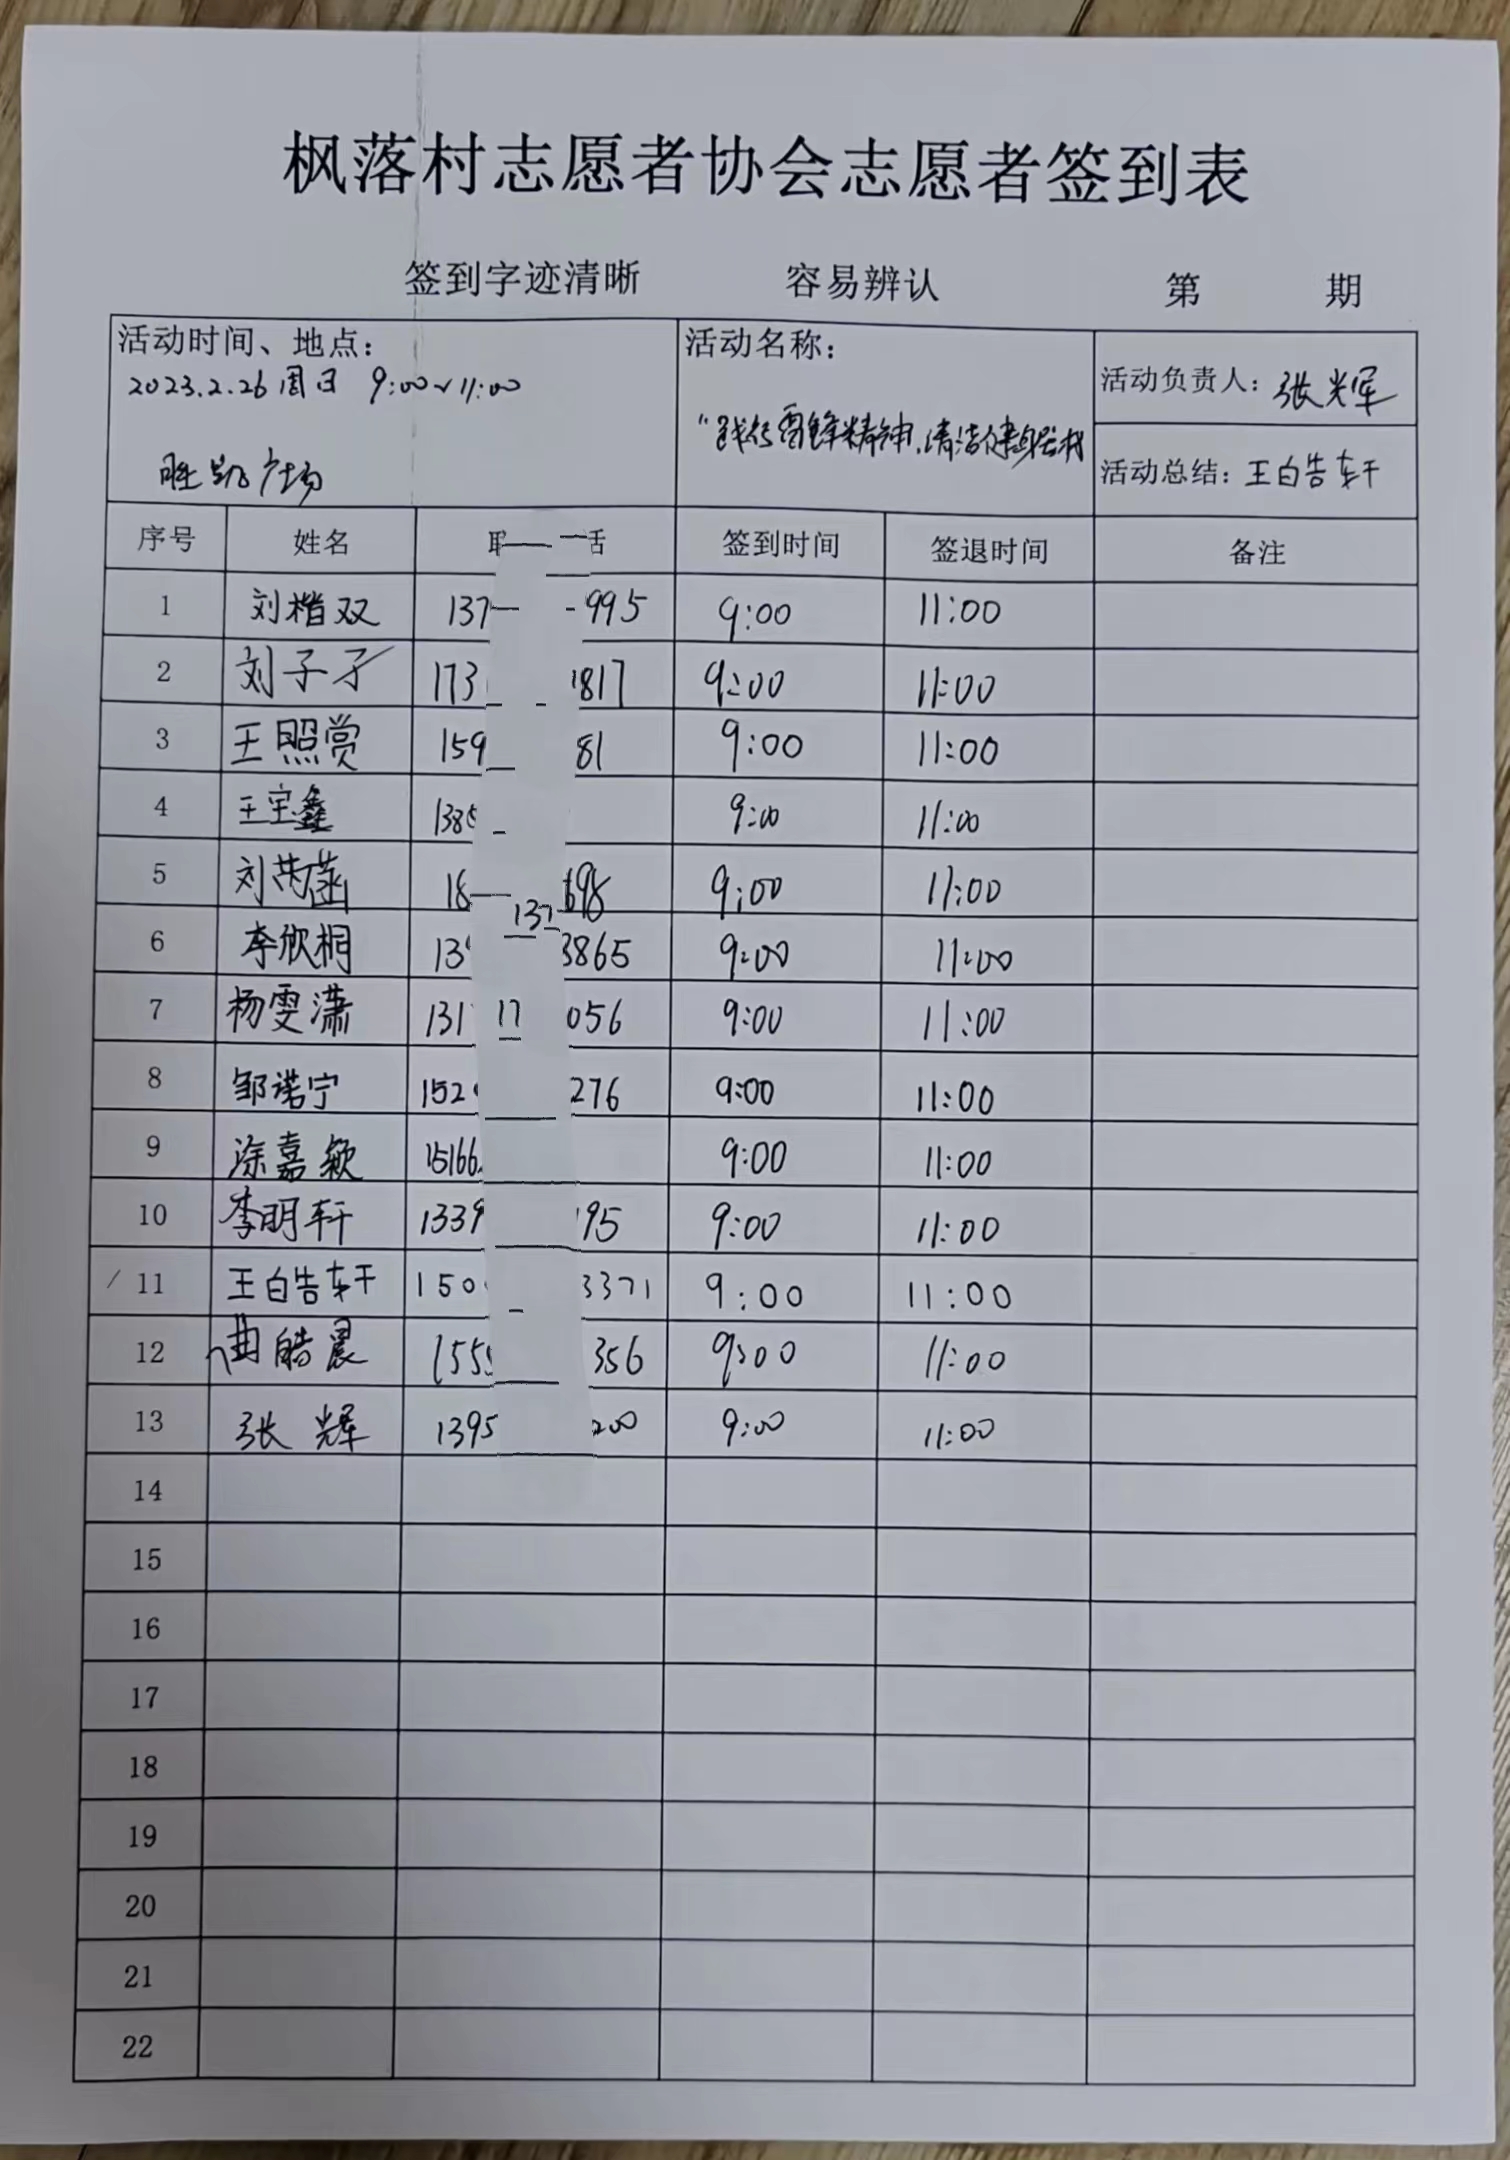 枫落村志愿者协会志愿者签到表
签到字迹清晰 容易辨认 第 期
活动时间、地点：
2023.2.26周日 9:00~11:00
胜凯广场
活动名称：
"践行雷锋精神,清洁健身器材
活动负责人：张光军
活动总结：王皓轩
序号 姓名 话 签到时间 签退时间 备注
1 刘楷双 137 995 9:00 11:00
2 刘子孑 173 1817 9:00 11:00
3 王照赏 159 81 9:00 11:00
4 王宝鑫 138 9:00 11:00
5 刘芮菡 18 698 9:00 11:00
137
6 李欣桐 13 3865 9:00 11:00
7 杨雯潇 131 17 056 9:00 11:00
8 邹诺宁 152 276 9:00 11:00
9 涂嘉颖 15166 9:00 11:00
10 李明轩 1339 195 9:00 11:00
11 王皓轩 150 3371 9:00 11:00
12 曲皓晨 155 356 9:00 11:00
13 张辉 1395 200 9:00 11:00
14
15
16
17
18
19
20
21
22